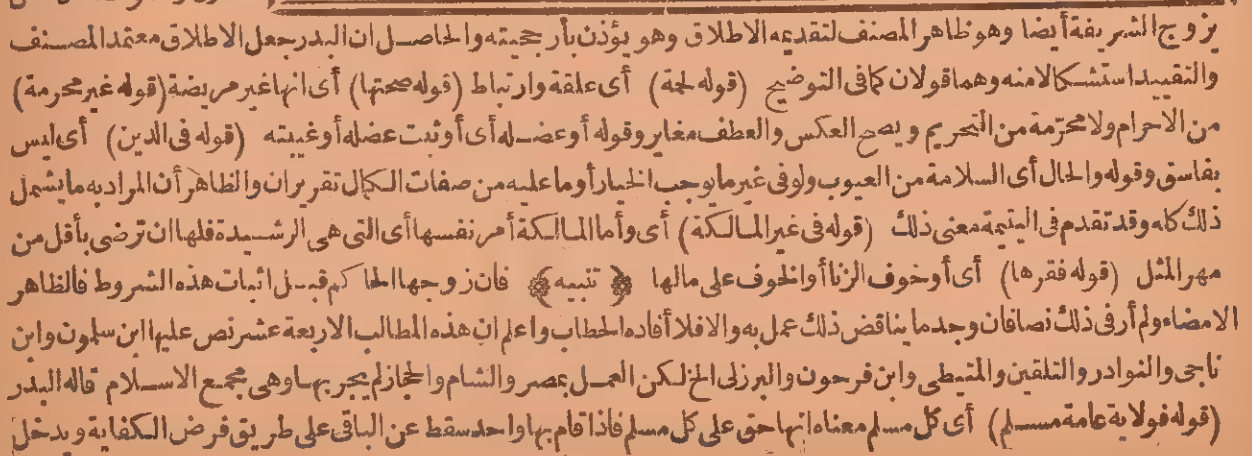 يزوج الشريفة أيضا وهو ظاهر المصنف لتقديمه الاطلاق وهو يؤذن بأرجحيته والحاصل ان البدر جعل الاطلاق معتمد المصنف
والتقييد استشكالا منه وهما قولان كما فى التوضيح (قوله لحمة) أى علقة وارتباط (قوله صحتها) أى انها غير مريضة (قوله غير محرمة)
من الاحرام ولا محرّمة من التحريم ويصح العكس والعطف مغاير وقوله أو عضله أى أو ثبت عضله أو غيبته (قوله فى الدين) أى ليس
بفاسق وقوله والحال أى السلامة من العيوب ولو فى غير ما يوجب الخيار أو ما عليه من صفات الكمال تقريران والظاهر أن المراد به ما يشمل
ذلك كله وقد تقدم فى اليتيمة معنى ذلك (قوله فى غير المالكة) أى وأما المالكة أمر نفسها أى التى هى الرشيدة فلها ان ترضى بأقل من
مهر المثل (قوله فقرها) أى أو خوف الزنا أو الخوف على مالها ﴿تنبيه﴾ فان زوجها الحاكم قبل اثبات هذه الشروط فالظاهر
الامضاء ولم أر فى ذلك نصا فان وجد ما يناقض ذلك عمل به والا فلا أفاده الحطاب واعلم ان هذه المطالب الاربعة عشر نص عليها ابن سلون وابن
ناجى والنوادر والتلقين والمتيطى وابن فرحون والبرزلى الخ لكن العمل بمصر والشام والحجاز لم يجر بها وهى مجمع الاسلام قاله البدر
(قوله فولاية عامة مسلم) أى كل مسلم معناه انها حق على كل مسلم فاذا قام بها واحد سقط عن الباقى على طريق فرض الكفاية ويدخل